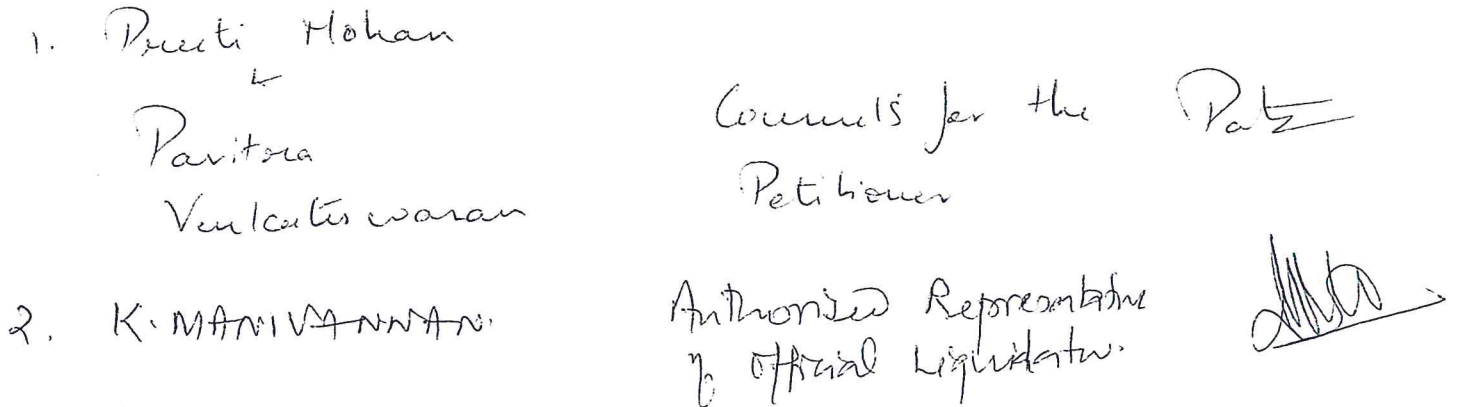 1. Preeti Mohan
&
Pavitra
Venkateswaran
Counsels for the
Petitioner
2. K. MANIVANNAN.
Authorised Representative
of Official Liquidator.